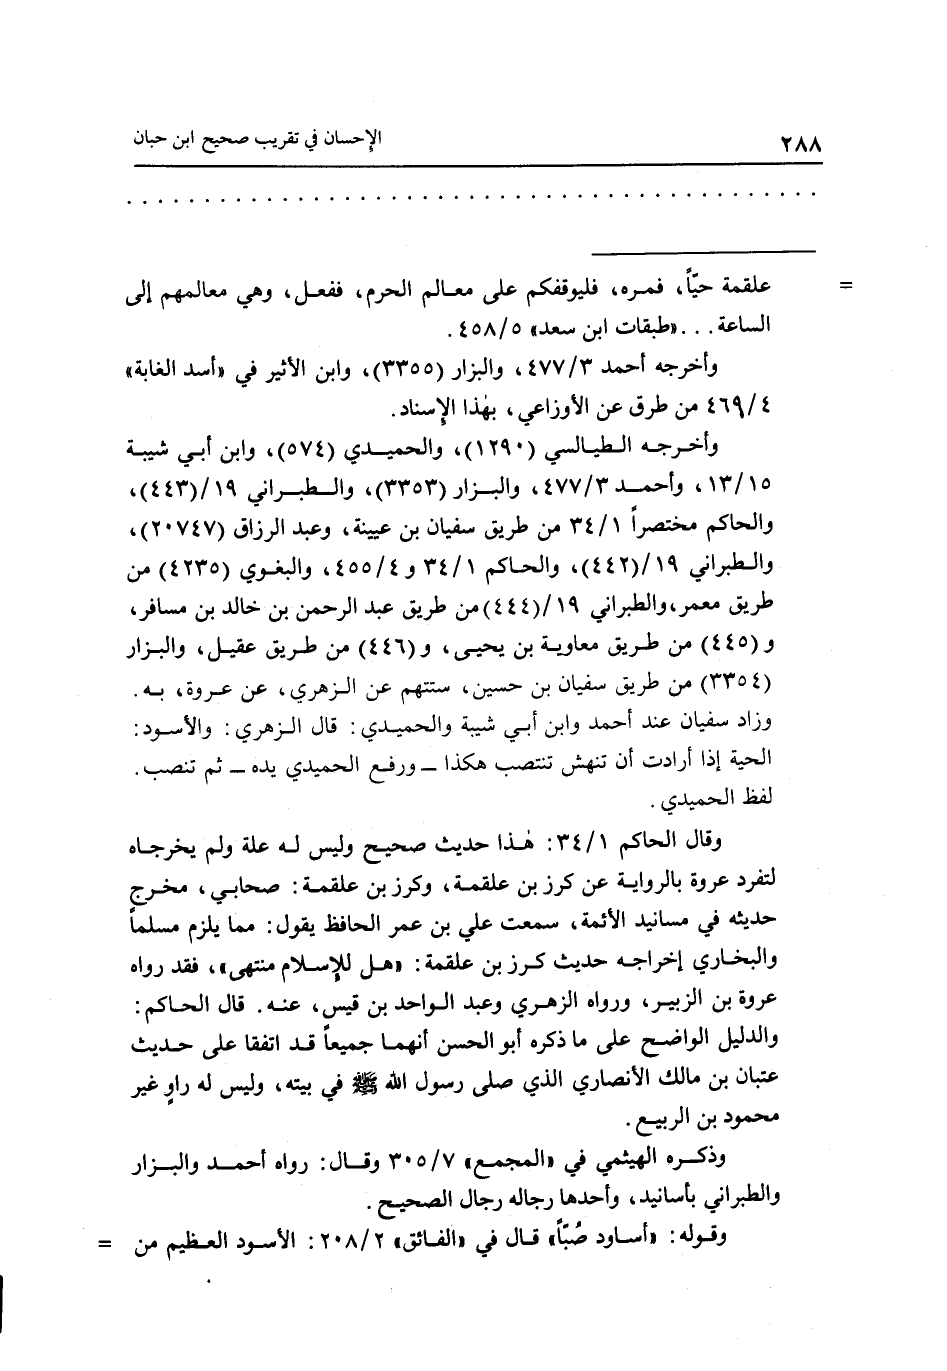 ٢٨٨ الإحسان في تقريب صحيح ابن حبان
= علقمة حيّاً، فمره، فليوقفكم على معالم الحرم، ففعل، وهي معالمهم إلى
الساعة. . . «طبقات ابن سعد» ٤٥٨/٥ .
وأخرجه أحمد ٤٧٧/٣، والبزار (٣٣٥٥)، وابن الأثير في «أسد الغابة»
٤٦٩/٤ من طرق عن الأوزاعي، بهٰذا الإسناد.
وأخرجه الطيالسي (١٢٩٠)، والحميدي (٥٧٤)، وابن أبي شيبة
١٣/١٥، وأحمد ٤٧٧/٣، والبزار (٣٣٥٣)، والطبراني ١٩/(٤٤٣)،
والحاكم مختصراً ٣٤/١ من طريق سفيان بن عيينة، وعبد الرزاق (٢٠٧٤٧)،
والطبراني ١٩/(٤٤٢)، والحاكم ٣٤/١ و ٤٥٥/٤، والبغوي (٤٢٣٥) من
طريق معمر، والطبراني ١٩/(٤٤٤) من طريق عبد الرحمن بن خالد بن مسافر،
و (٤٤٥) من طريق معاوية بن يحيى، و (٤٤٦) من طريق عقيل، والبزار
(٣٣٥٤) من طريق سفيان بن حسين، ستتهم عن الزهري، عن عروة، به.
وزاد سفيان عند أحمد وابن أبي شيبة والحميدي: قال الزهري: والأسود:
الحية إذا أرادت أن تنهش تنتصب هكذا ــ ورفع الحميدي يده ــ ثم تنصب.
لفظ الحميدي .
وقال الحاكم ٣٤/١: هٰذا حديث صحيح وليس له علة ولم يخرجاه
لتفرد عروة بالرواية عن كرز بن علقمة، وكرز بن علقمة: صحابي، مخرج
حديثه في مسانيد الأئمة، سمعت علي بن عمر الحافظ يقول: مما يلزم مسلماً
والبخاري إخراجه حديث كرز بن علقمة: «هل للإسلام منتهى»، فقد رواه
عروة بن الزبير، ورواه الزهري وعبد الواحد بن قيس، عنه. قال الحاكم:
والدليل الواضح على ما ذكره أبو الحسن أنهما جميعاً قد اتفقا على حديث
عتبان بن مالك الأنصاري الذي صلى رسول الله ﷺ في بيته، وليس له راوٍ غير
محمود بن الربيع .
وذكره الهيثمي في «المجمع» ٣٠٥/٧ وقال: رواه أحمد والبزار
والطبراني بأسانيد، وأحدها رجاله رجال الصحيح .
وقوله: «أساود صُبّاً» قال في «الفائق» ٢٠٨/٢: الأسود العظيم من =